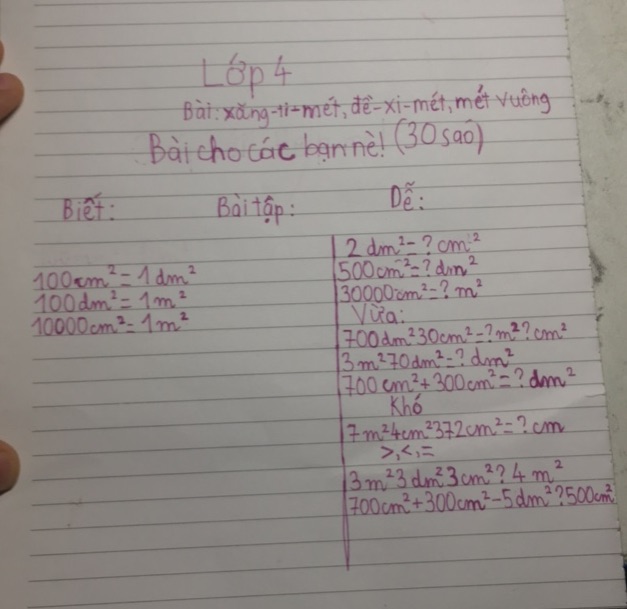 Lớp 4
Bài: xăng-ti-mét, đề-xi-mét, mét vuông
Bài cho các bạn nè! (30 sao)
Biết: Bài tập: Dễ:
100cm²=1dm²
100dm²=1m²
10000cm²=1m²
2dm²=?cm²
500cm²=?dm²
30000cm²=?m²
Vừa:
700dm²30cm²=?m²?cm²
3m²70dm²=?dm²
700cm²+300cm²=?dm²
Khó
7m²4cm²372cm²=?cm
>,<,=
3m²3dm²3cm²?4m²
700cm²+300cm²-5dm²?500cm²